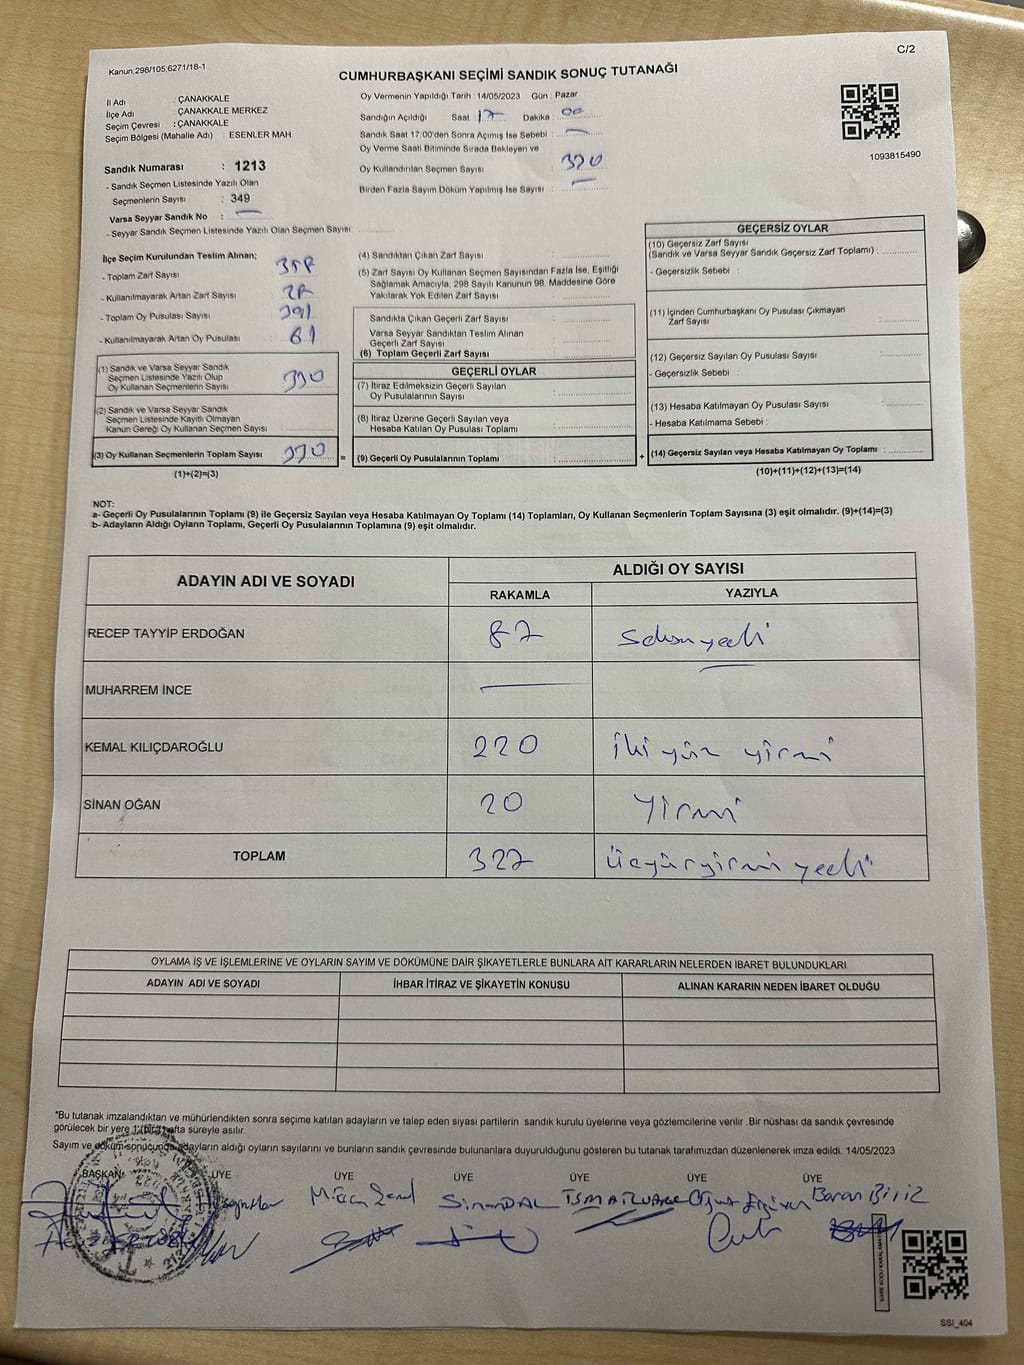 C/2
Kanun,298/105,6271/18-1
CUMHURBAŞKANI SEÇİMİ SANDIK SONUÇ TUTANAĞI
İl Adı : ÇANAKKALE
İlçe Adı : ÇANAKKALE MERKEZ
Seçim Çevresi : ÇANAKKALE
Seçim Bölgesi (Mahalle Adı) : ESENLER MAH.
Sandık Numarası : 1213
- Sandık Seçmen Listesinde Yazılı Olan
Seçmenlerin Sayısı : 349
Varsa Seyyar Sandık No :
- Seyyar Sandık Seçmen Listesinde Yazılı Olan Seçmen Sayısı:
Oy Vermenin Yapıldığı Tarih : 14/05/2023 Gün : Pazar
Sandığın Açıldığı Saat 17 Dakika 00
Sandık Saat 17.00'den Sonra Açımış İse Sebebi :
Oy Verme Saati Bitiminde Sırada Bekleyen ve
Oy Kullandırılan Seçmen Sayısı : 330
Birden Fazla Sayım Döküm Yapılmış İse Sayısı :
1093815490
İlçe Seçim Kurulundan Teslim Alınan;
- Toplam Zarf Sayısı
- Kullanılmayarak Artan Zarf Sayısı
- Toplam Oy Pusulası Sayısı 391
- Kullanılmayarak Artan Oy Pusulası 61
(1) Sandık ve Varsa Seyyar Sandık
Seçmen Listesinde Yazılı Olup
Oy Kullanan Seçmenlerin Sayısı : 330
(2) Sandık ve Varsa Seyyar Sandık
Seçmen Listesinde Kayıtlı Olmayan
Kanun Gereği Oy Kullanan Seçmen Sayısı :
(3) Oy Kullanan Seçmenlerin Toplam Sayısı : 330
(1)+(2)=(3)
(4) Sandıktan Çıkan Zarf Sayısı :
(5) Zarf Sayısı Oy Kullanan Seçmen Sayısından Fazla İse, Eşitliği
Sağlamak Amacıyla, 298 Sayılı Kanunun 98. Maddesine Göre
Yakılarak Yok Edilen Zarf Sayısı :
Sandıkta Çıkan Geçerli Zarf Sayısı :
Varsa Seyyar Sandıktan Teslim Alınan
Geçerli Zarf Sayısı :
(6) Toplam Geçerli Zarf Sayısı :
GEÇERLİ OYLAR
(7) İtiraz Edilmeksizin Geçerli Sayılan
Oy Pusulalarının Sayısı :
(8) İtiraz Üzerine Geçerli Sayılan veya
Hesaba Katılan Oy Pusulası Toplamı :
= (9) Geçerli Oy Pusulalarının Toplamı : +
GEÇERSİZ OYLAR
(10) Geçersiz Zarf Sayısı
(Sandık ve Varsa Seyyar Sandık Geçersiz Zarf Toplamı) :
- Geçersizlik Sebebi :
(11) İçinden Cumhurbaşkanı Oy Pusulası Çıkmayan
Zarf Sayısı :
(12) Geçersiz Sayılan Oy Pusulası Sayısı :
- Geçersizlik Sebebi :
(13) Hesaba Katılmayan Oy Pusulası Sayısı :
- Hesaba Katılmama Sebebi :
(14) Geçersiz Sayılan veya Hesaba Katılmayan Oy Toplamı :
(10)+(11)+(12)+(13)=(14)
NOT:
a- Geçerli Oy Pusulalarının Toplamı (9) ile Geçersiz Sayılan veya Hesaba Katılmayan Oy Toplamı (14) Toplamları, Oy Kullanan Seçmenlerin Toplam Sayısına (3) eşit olmalıdır. (9)+(14)=(3)
b- Adayların Aldığı Oyların Toplamı, Geçerli Oy Pusulalarının Toplamına (9) eşit olmalıdır.
ADAYIN ADI VE SOYADI
ALDIĞI OY SAYISI
RAKAMLA YAZIYLA
RECEP TAYYİP ERDOĞAN 87 Seksen yedi
MUHARREM İNCE
KEMAL KILIÇDAROĞLU 220 İki yüz yirmi
SİNAN OĞAN 20 Yirmi
TOPLAM 327 Üçyüzyirmi yedi
OYLAMA İŞ VE İŞLEMLERİNE VE OYLARIN SAYIM VE DÖKÜMÜNE DAİR ŞİKAYETLERLE BUNLARA AİT KARARLARIN NELERDEN İBARET BULUNDUKLARI
ADAYIN ADI VE SOYADI İHBAR İTİRAZ VE ŞİKAYETİN KONUSU ALINAN KARARIN NEDEN İBARET OLDUĞU
*Bu tutanak imzalandıktan ve mühürlendikten sonra seçime katılan adayların ve talep eden siyasi partilerin sandık kurulu üyelerine veya gözlemcilerine verilir. Bir nüshası da sandık çevresinde
görülecek bir yere 1 (bir) hafta süreyle asılır.
Sayım ve döküm sonucunda adayların aldığı oyların sayılarını ve bunların sandık çevresinde bulunanlara duyurulduğunu gösteren bu tutanak tarafımızdan düzenlenerek imza edildi. 14/05/2023
BAŞKAN ÜYE ÜYE ÜYE ÜYE ÜYE ÜYE
Baran Biliz
KARE KODU KARALAMAYINIZ
SSI_404